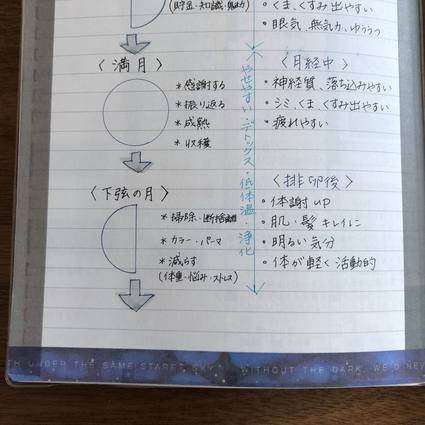 (貯金・知識・魅力)
• くま、くすみ出やすい
• 眠気、無気力、ゆううつ
〈満月〉
* 感謝する
* 振り返る
* 成熟
* 収穫
やせやすい・デトックス・低体温・浄化
〈月経中〉
• 神経質、落ち込みやすい
• シミ、くま くすみ出やすい
• 疲れやすい
〈下弦の月〉
* 掃除・断捨離
* カラー・パーマ
* 減らす
(体重・悩み・ストレス)
〈排卵後〉
• 体謝 up
• 肌・髪 キレイに
• 明るい気分
• 体が軽く活動的
TH UNDER THE SAME STARRS SKY
WITHOUT THE DARK, WE'D NEV